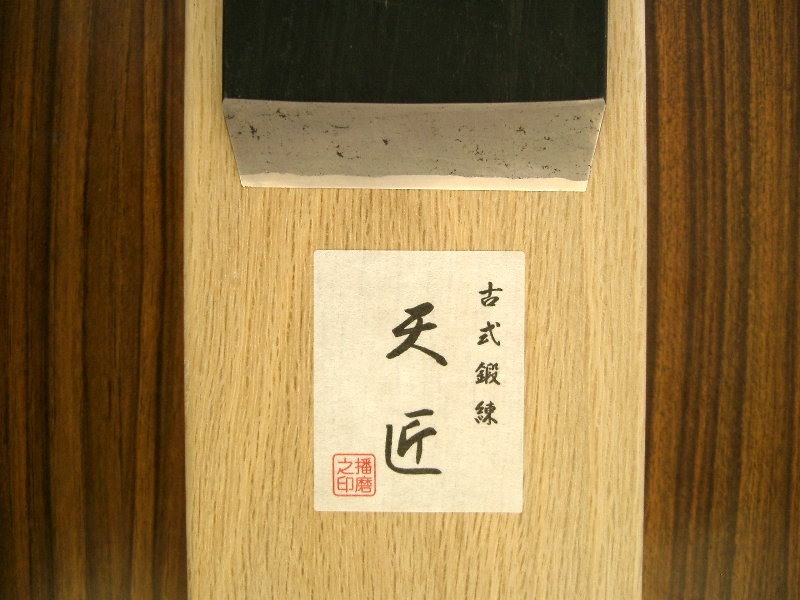 古式鍛練
天匠
播磨
之印